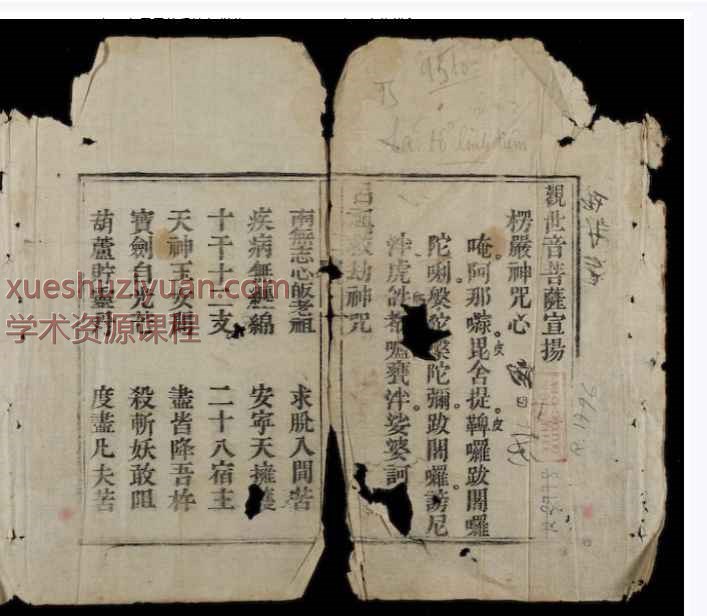 觀世音菩薩宣揚
楞嚴神咒心
唵阿那㘕毘舍提鞞囉跋闍囉
陀唎槃陀槃陀彌跋闍囉謗尼
泮虎𤙖都嚧甕泮娑婆訶
救劫神咒
南無志心皈老祖 求脫人間苦
疾病無纏綿 安寧天擁護
十干十二支 二十八宿主
天神玉女 盡皆降吾杵
寶劍自光芒 殺斬妖敢阻
葫蘆貯靈丹 度盡凡夫苦
xueshuziyuan.com
学术资源课程